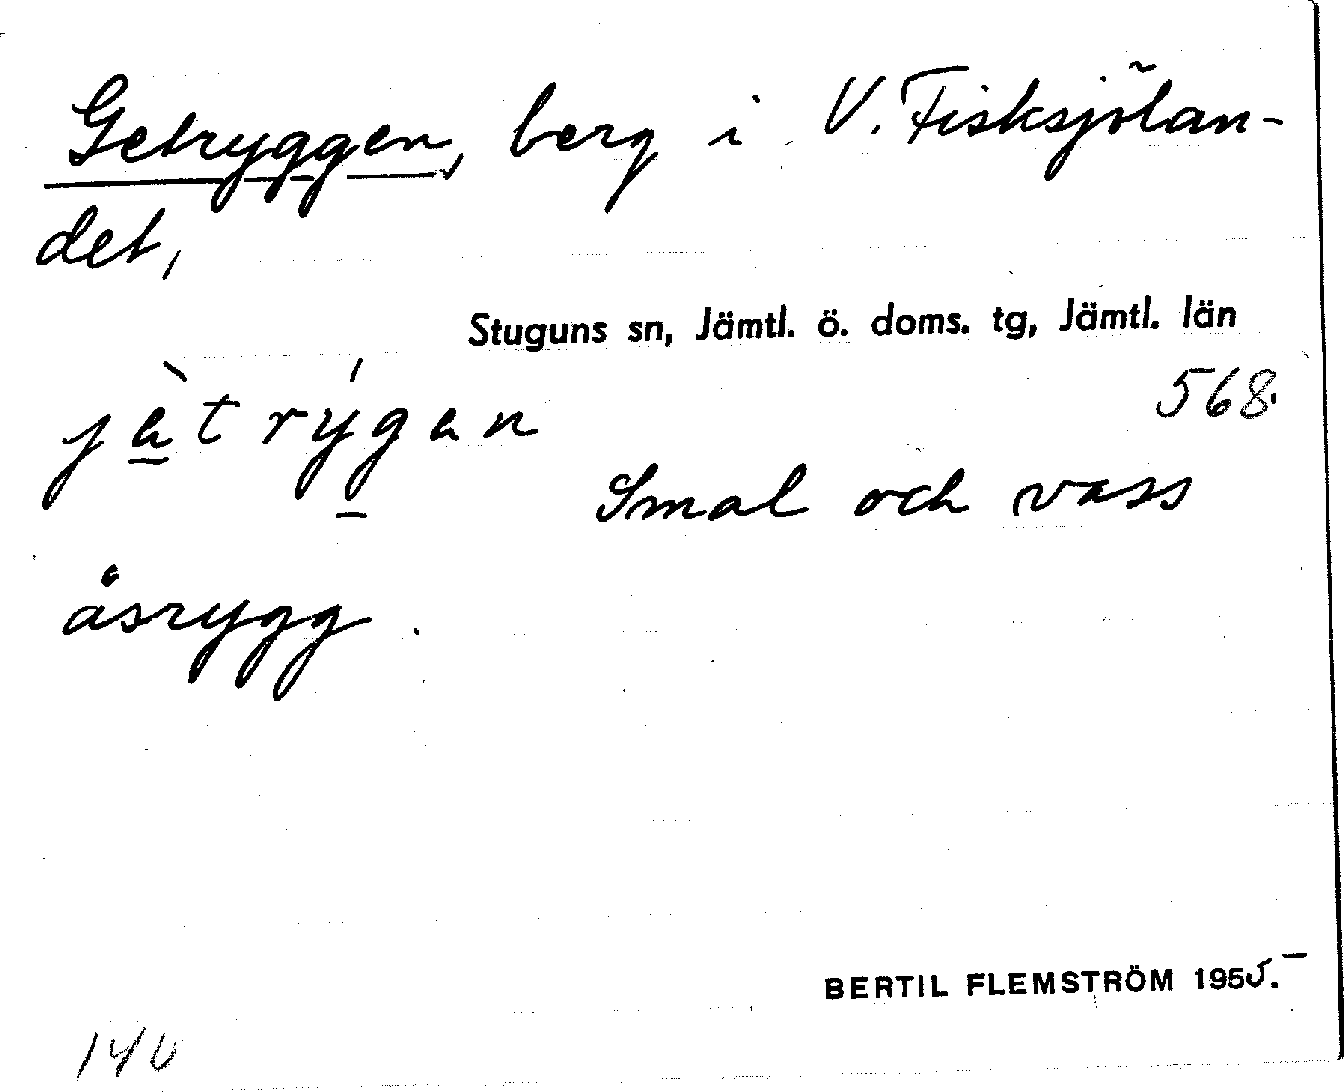 Getryggen, berg i V. Fisksjölan-
det,
Stuguns sn, Jämtl. ö. doms. tg, Jämtl. län
568.
Smal och vass
åsrygg.
BERTIL FLEMSTRÖM 1955.